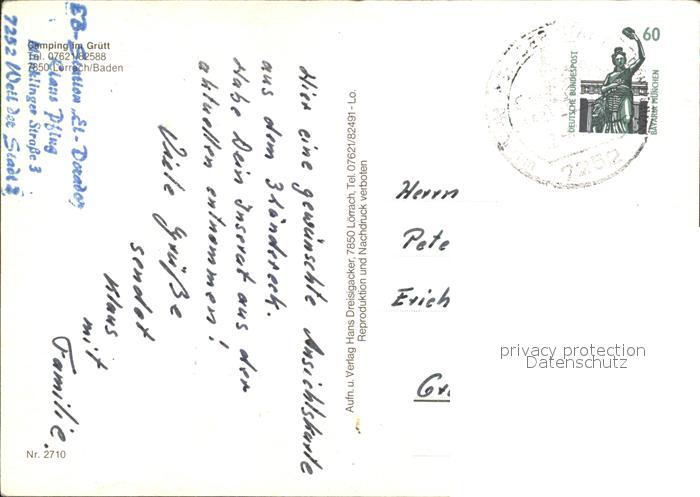 Camping im Grütt
Tel. 07621/82588
7850 Lörrach/Baden
EB-Station El-Dorador
Klaus Pflug
Straße 3
7252 Weil der Stadt
Hier eine gewünschte Ansichtskarte
aus dem 3Ländereck.
Habe Dein Inserat aus der
aktuellen entnommen!
Viele Grüße
sendet
Klaus
mit
Familie.
Nr. 2710
Aufn. u. Verlag Hans Dreisigacker, 7850 Lörrach, Tel. 07621/82491 - Lo.
Reproduktion und Nachdruck verboten
60
DEUTSCHE BUNDESPOST
BAVARIA MÜNCHEN
7252
Herrn
Pete
Erich
privacy protection
Datenschutz